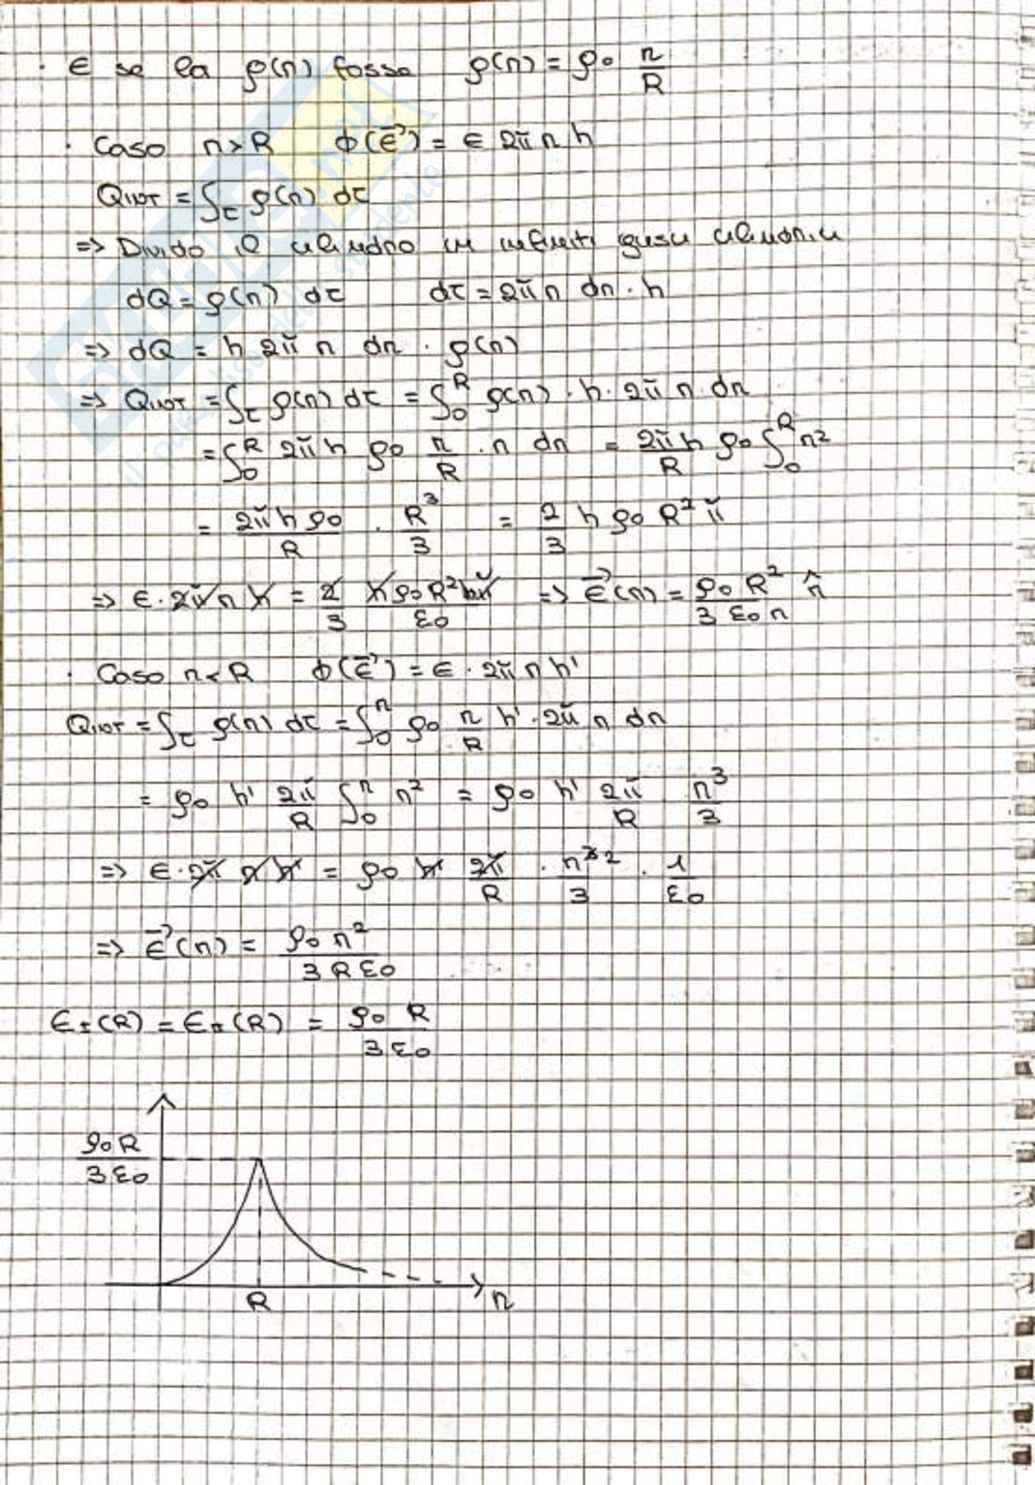 · E se la ρ(r) fosse ρ(r) = ρ0 r/R
· Caso r>R Φ(E⃗) = E 2π r h
QINT = ∫τ ρ(r) dτ
=> Divido il cilindro in infiniti gusci cilindrici
dQ = ρ(r) dτ dτ = 2π r dr · h
=> dQ = h 2π r dr · ρ(r)
=> QINT = ∫τ ρ(r) dτ = ∫0^R ρ(r) · h · 2π r dr
= ∫0^R 2π h ρ0 r/R · r dr = 2πh/R ρ0 ∫0^R r²
= 2πhρ0/R · R³/3 = 2/3 h ρ0 R² π
=> E · 2π r h = 2/3 hρ0R²π/ε0 => E⃗(r) = ρ0 R²/3 ε0 r r̂
· Caso r<R Φ(E⃗) = E · 2π r h'
QINT = ∫τ ρ(r) dτ = ∫0^r ρ0 r/R h' · 2π r dr
= ρ0 h' 2π/R ∫0^r r² = ρ0 h' 2π/R r³/3
=> E · 2π r h = ρ0 h 2π/R · r³ ²/3 · 1/ε0
=> E⃗(r) = ρ0 r²/3 R ε0
EI(R) = EII(R) = ρ0 R/3 ε0
ρ0 R/3 ε0
R r